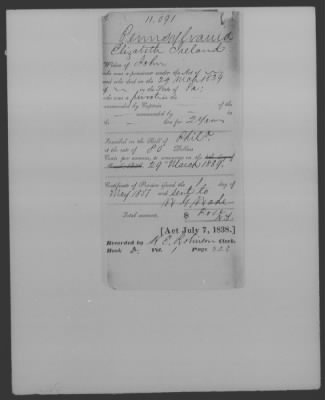 11.091
Pennsylvania
Elizabeth Ireland
Widow of John
who was a pensioner under the Act of
and who died on the 29 March 1839
of — in the State of Pa:
who was a private in the
commanded by Captain — of the
commanded by — in
the — line for 2 Years
Inscribed on the Roll of Phila.
at the rate of 80 Dollars
Cents per annum, to commence on the
29 March 1839.
Certificate of Pension issued the 1 day of
May 1851 and sent to
Total amount, $
[Act July 7, 1838.]
Recorded by Robinson Clerk,
Book D. Vol. 1 Page